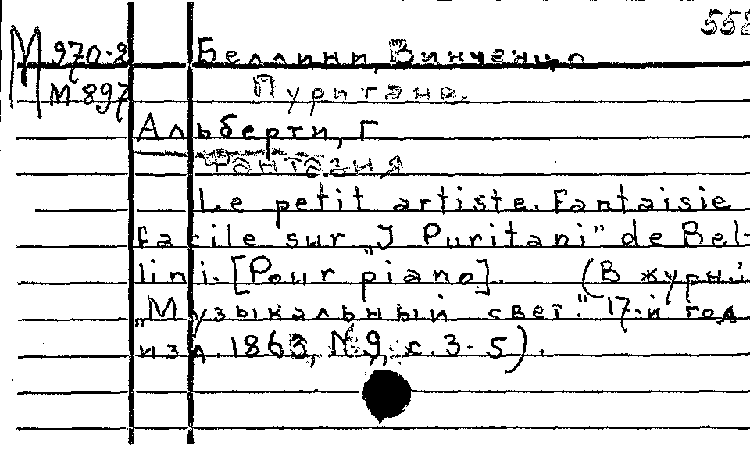 558
М 970-2 Беллини, Винченцо
М 897 Пуритане.
Альберти, Г
Фантазия
Le petit artiste. Fantaisie
facile sur „I Puritani" de Bel-
lini. [Pour piano]. (В журн.
„Музыкальный свет." 17-й год
изд. 1863, №9, с. 3-5).